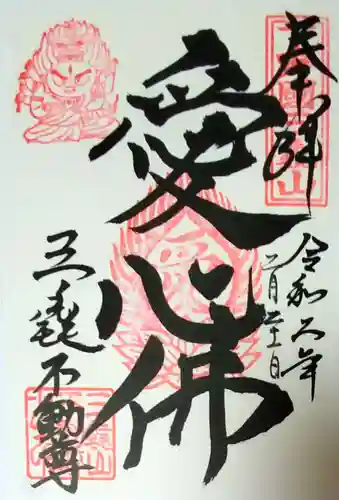 奉拝
令和六年
二月二十一日
愛心佛
三毳不動尊